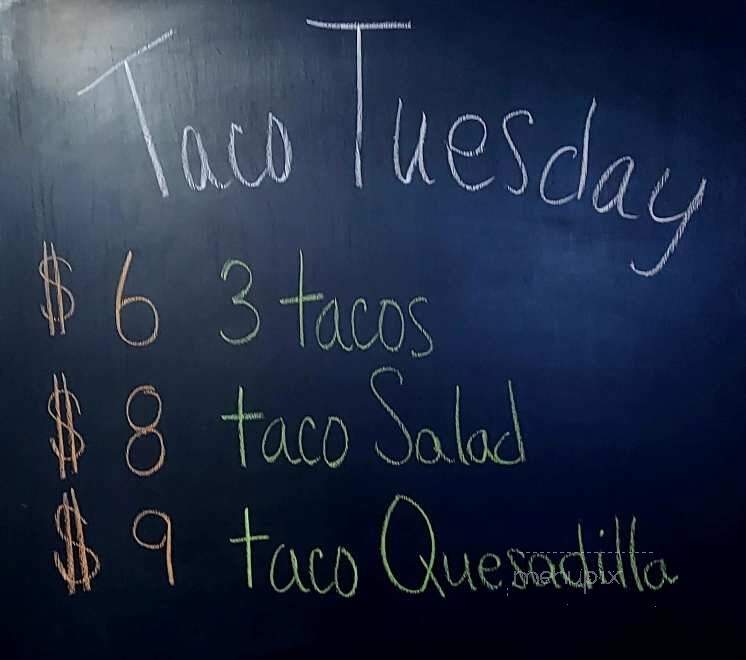 Taco Tuesday
$ 6 3 tacos
$ 8 taco Salad
$ 9 taco Quesadilla
menupix